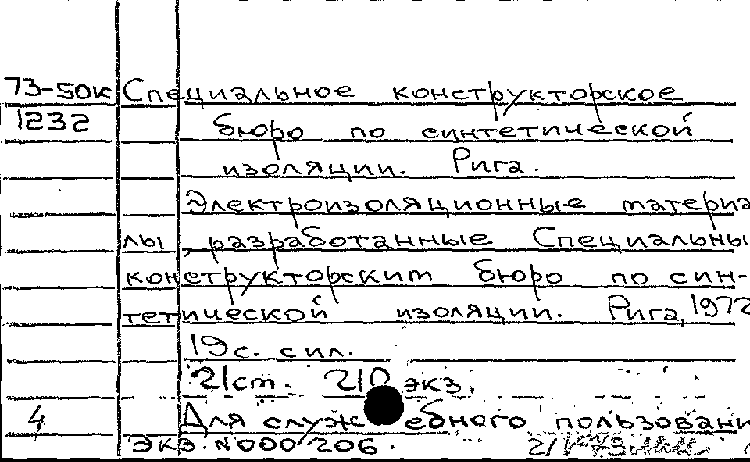 73-50к Специальное конструкторское
1232 бюро по синтетической
изоляции. Рига.
Электроизоляционные материа
лы, разработанные Специальны
конструкторским бюро по син-
тетической изоляции. Рига, 1972
19с. с ил.
21 ст. 210 экз.
4 Для служебного пользовани
экз. N 000206.